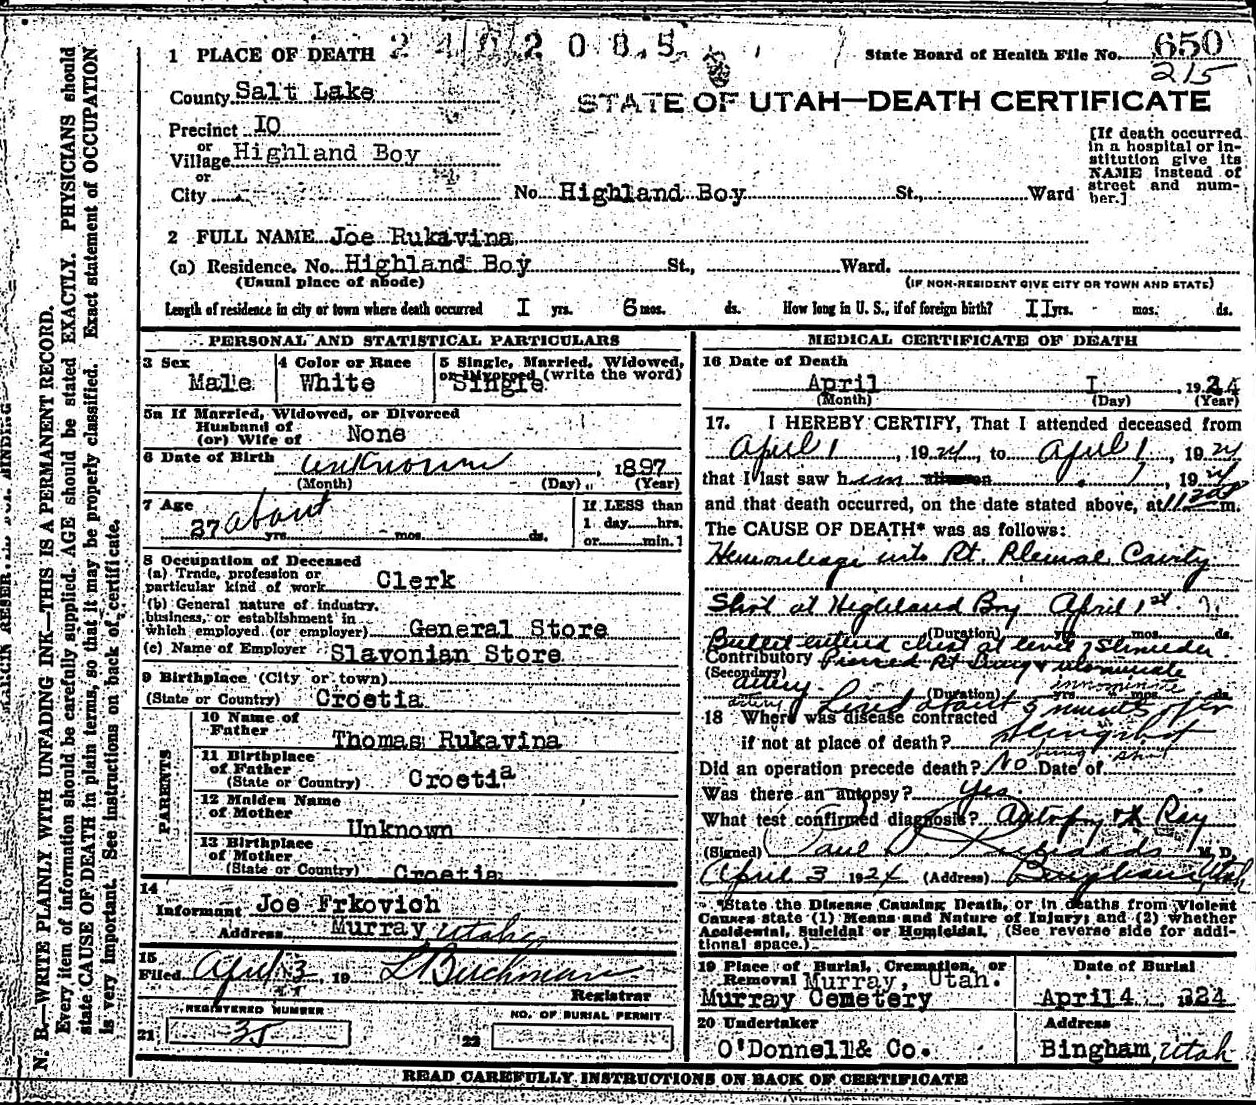 1 PLACE OF DEATH 2 4 0 2 0 8 5
State Board of Health File No. 650
215
County Salt Lake
STATE OF UTAH—DEATH CERTIFICATE
Precinct IO
or
Village Highland Boy
or
City
No. Highland Boy St., Ward
[If death occurred
in a hospital or in-
stitution give its
NAME instead of
street and num-
ber.]
2 FULL NAME Joe Rukavina
(a) Residence. No. Highland Boy St., Ward.
(Usual place of abode) (IF NON-RESIDENT GIVE CITY OR TOWN AND STATE)
Length of residence in city or town where death occurred I yrs. 6 mos. ds. How long in U. S., if of foreign birth? II yrs. - mos. ds.
PERSONAL AND STATISTICAL PARTICULARS
3 Sex
Male
4 Color or Race
White
5 Single, Married, Widowed,
or Divorced (write the word)
Single
5a If Married, Widowed, or Divorced
Husband of
(or) Wife of None
6 Date of Birth unknown, 1897
(Month) (Day) (Year)
7 Age
27 about yrs. mos. ds.
If LESS than
1 day hrs.
or min.
8 Occupation of Deceased
(a) Trade, profession or
particular kind of work Clerk
(b) General nature of industry,
business, or establishment in
which employed (or employer) General Store
(c) Name of Employer Slavonian Store
9 Birthplace (City or town)
(State or Country) Croetia
PARENTS
10 Name of
Father Thomas Rukavina
11 Birthplace
of Father
(State or Country) Croetia
12 Maiden Name
of Mother
Unknown
13 Birthplace
of Mother
(State or Country) Croetia
14
Informant Joe Frkovich
Address Murray Utah
15
Filed April 3 19 L Birchman
Registrar
REGISTERED NUMBER
21 35
NO. OF BURIAL PERMIT
22
MEDICAL CERTIFICATE OF DEATH
16 Date of Death
April I, 1924
(Month) (Day) (Year)
17. I HEREBY CERTIFY, That I attended deceased from
April 1, 1924, to April 1, 1924
that I last saw him alive on 1, 1924
and that death occurred, on the date stated above, at m.
The CAUSE OF DEATH* was as follows:
Hemorrhage into Rt. Pleural Cavity
Shot at Highland Boy April 1st.
(Duration) yrs. mos. ds.
Bullet entered chest at level
Contributory Pierced Rt Lung & innominate
(Secondary)
artery. (Duration) yrs. mos. ds.
artery innominate
Lived about 5 minutes after
18 Where was disease contracted
if not at place of death?
being shot
Did an operation precede death? No Date of
Was there an autopsy? Yes
What test confirmed diagnosis? Autopsy & X Ray
(Signed) Paul S Richards M. D.
April 3 1924 (Address) Bingham, Utah
*State the Disease Causing Death, or in deaths from Violent
Causes state (1) Means and Nature of Injury; and (2) whether
Accidental, Suicidal or Homicidal. (See reverse side for addi-
tional space.)
19 Place of Burial, Cremation, or
Removal Murray, Utah.
Murray Cemetery
Date of Burial
April 4 1924
20 Undertaker
O'Donnell & Co.
Address
Bingham, Utah
READ CAREFULLY INSTRUCTIONS ON BACK OF CERTIFICATE
N. B.—WRITE PLAINLY WITH UNFADING INK—THIS IS A PERMANENT RECORD.
Every item of information should be carefully supplied. AGE should be stated EXACTLY. PHYSICIANS should
state CAUSE OF DEATH in plain terms, so that it may be properly classified. Exact statement of OCCUPATION
is very important. See instructions on back of certificate.